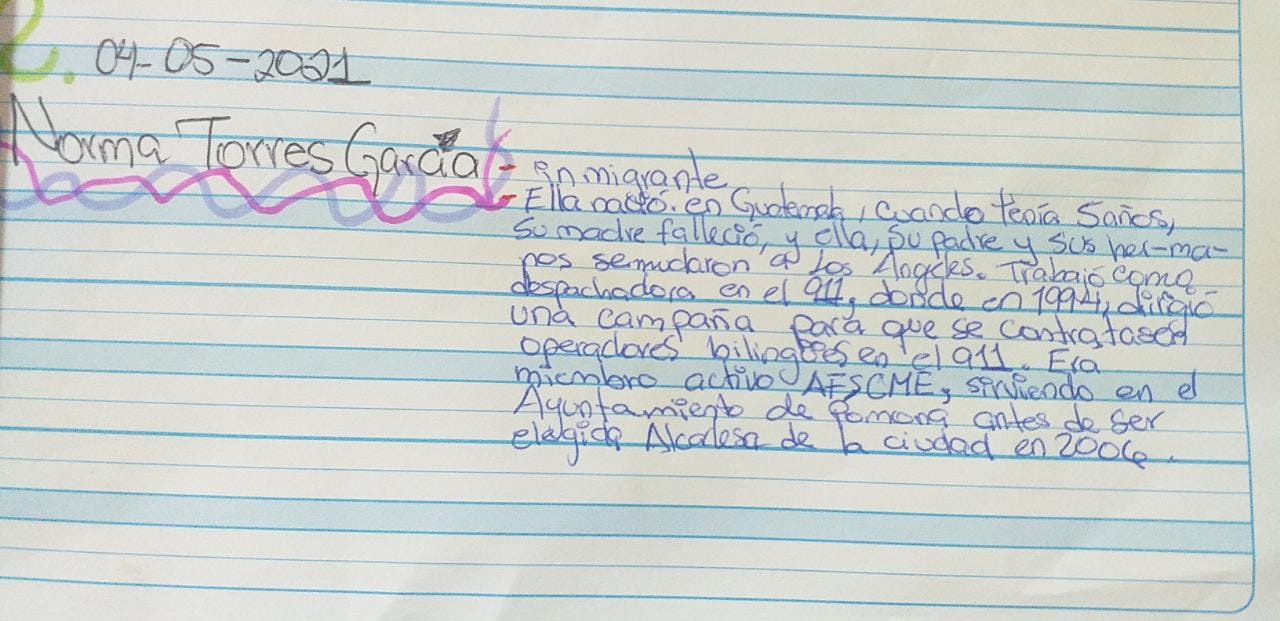 2. 04-05-2021
Norma Torres Garcia - inmigrante
- Ella nació en Guatemala, cuando tenía 5 años,
su madre falleció, y ella, su padre y sus her-ma-
nos se mudaron a Los Angeles. Trabajó como
despachadora en el 911, donde en 1994, dirigió
una campaña para que se contratasen
operadores bilingües en el 911. Era
miembro activo AFSCME, sirviendo en el
Ayuntamiento de Pomona antes de ser
elegida Alcadesa de la ciudad en 2006.